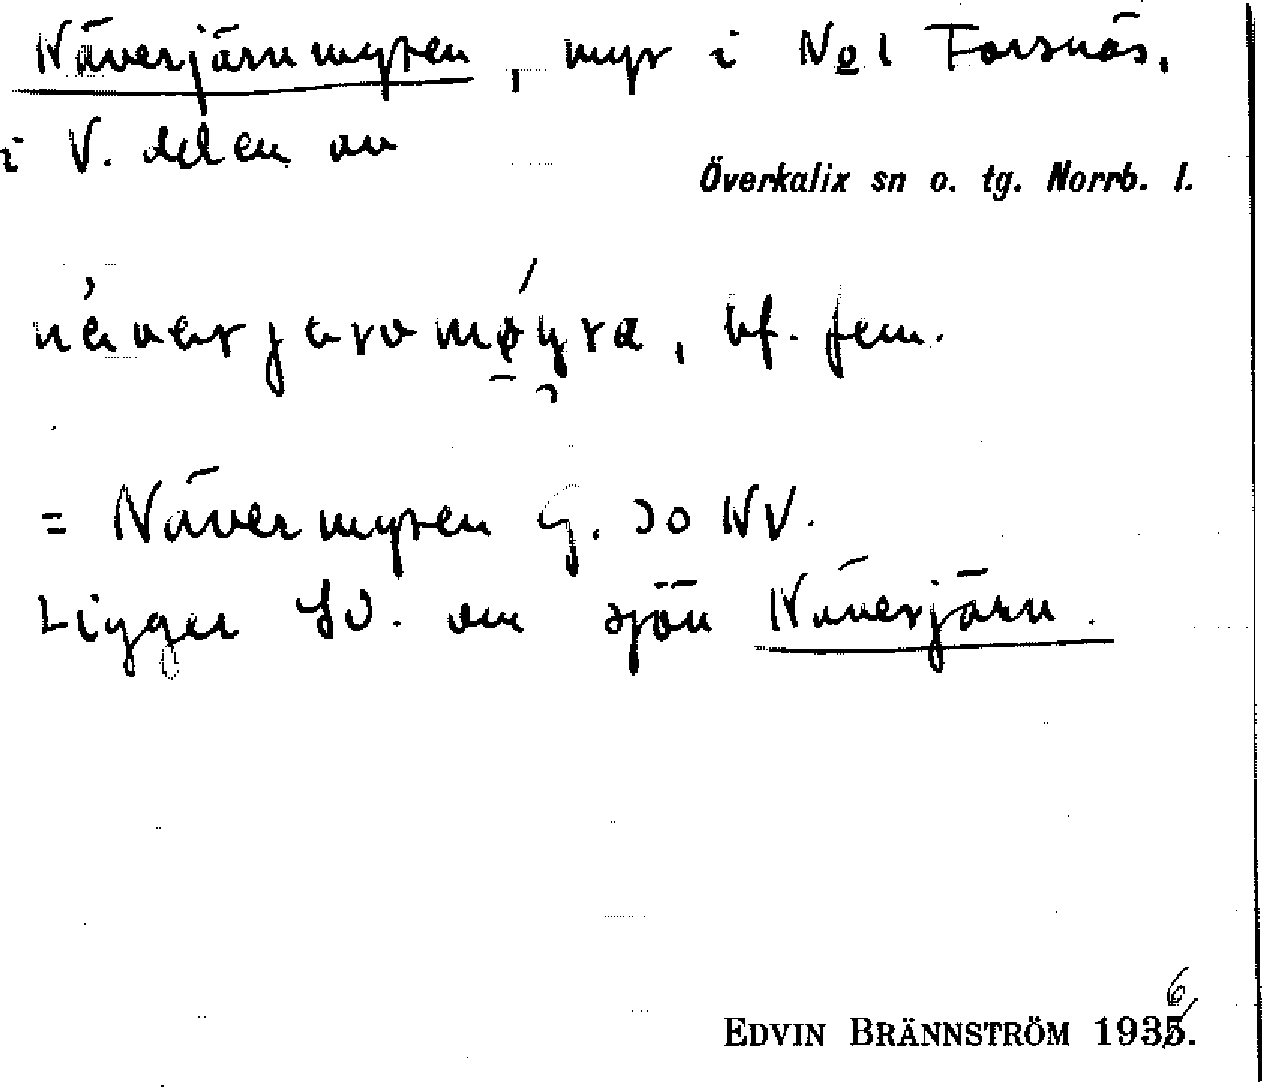 Näverjärnmyren, myr i No 1 Forsnäs.
i V. delen av
Överkalix sn o. tg. Norrb. l.
bf. fem.
= Nävermyren G. 30 NV.
Ligger SV. om sjön Näverjärn.
EDVIN BRÄNNSTRÖM 1936.